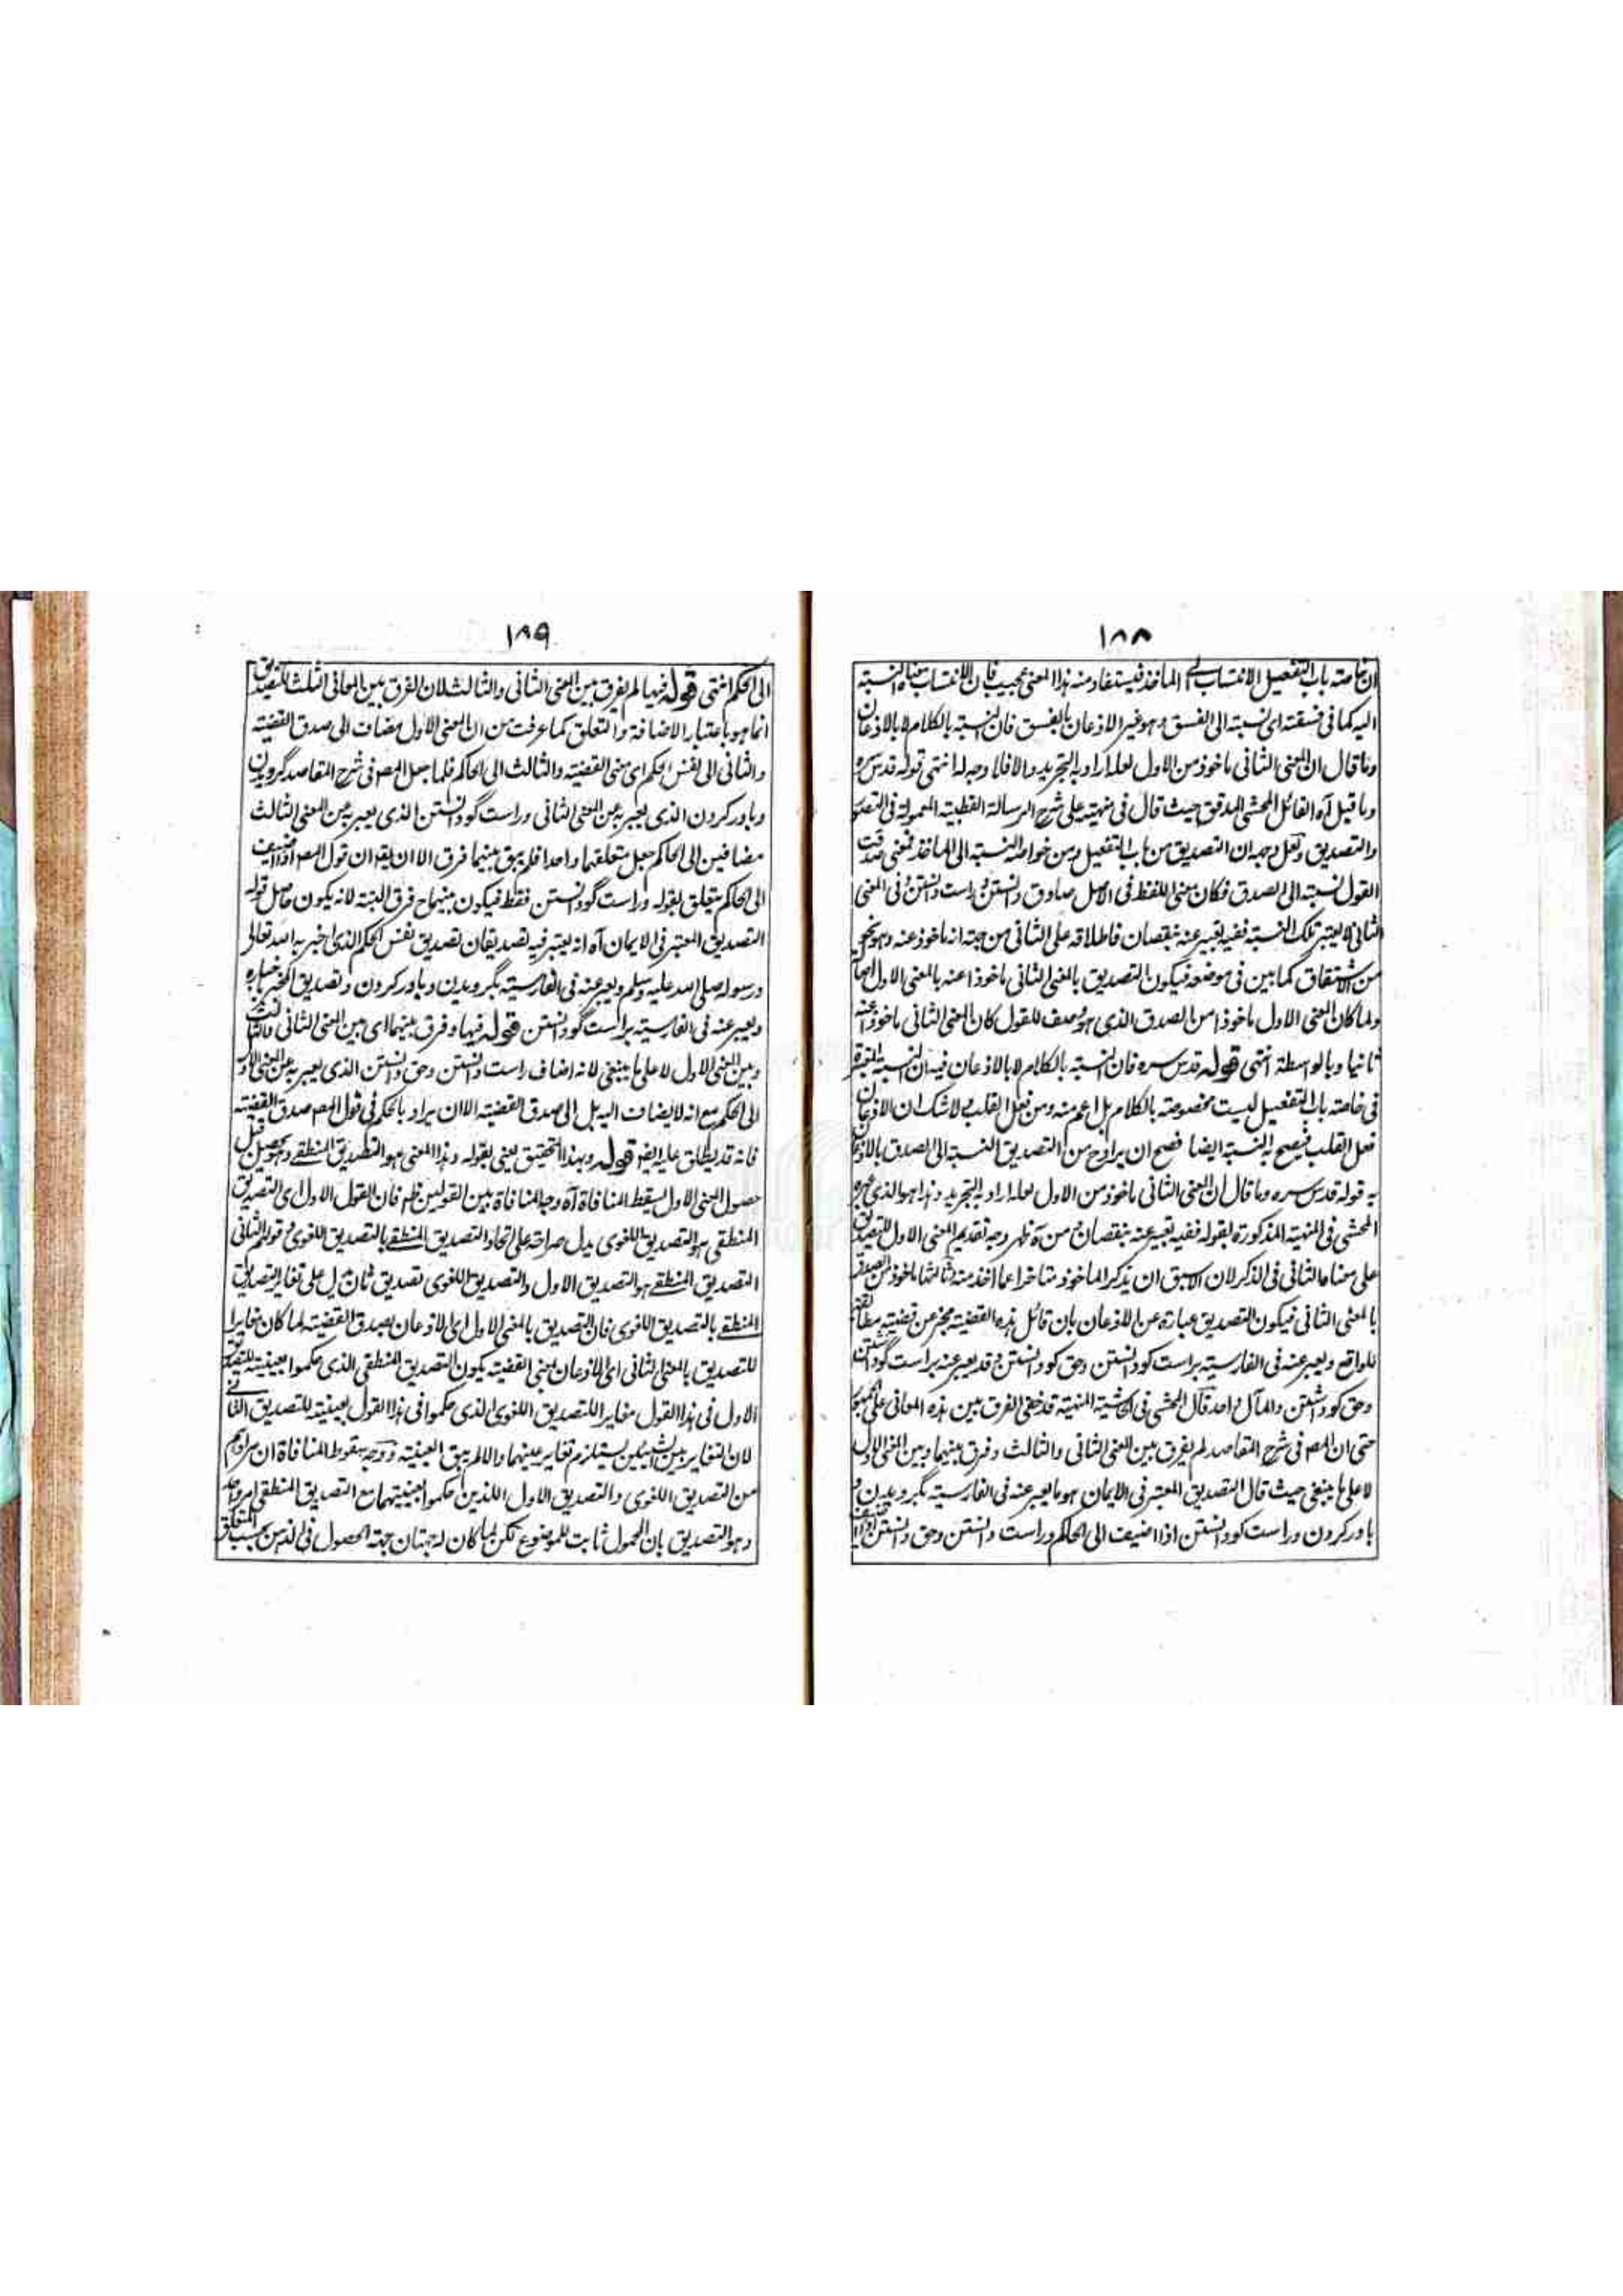 ١٨٨
ان خاصته باب التفعيل الانتساب الى الماخذ فيستفاد منه هذا المعنى مجيب فان الانتساب معناه النسبة
اليه كما فى فسقته اى نسبته الى الفسق وهو غير الاذعان بالفسق فان النسبة بالكلام لا بالاذعان
وما قال ان المعنى الثانى ماخوذ من الاول لعله اراد به التجريد والا فلا وجه له انتهى قوله قدس سره
وما قيل آه القائل المحشى المدقق حيث قال فى منهيته على شرح الرسالة القطبية المعمولة فى التصور
والتصديق ولعل وجهه ان التصديق من باب التفعيل ومن خواصه النسبة الى الماخذ فمعنى صدقت
القول نسبته الى الصدق فكان معنى اللفظ فى الاصل صادق دانستن وراست دانستن وفى المعنى
الثانى لا يعتبر تلك النسبة ففيه تعبير عنه بنقصان فاطلاقه على الثانى من جهة انه ماخوذ عنه وهو نحو
من الاشتقاق كما بين فى موضعه فيكون التصديق بالمعنى الثانى ماخوذا عنه بالمعنى الاول ايضا
ولما كان المعنى الاول ماخوذا من الصدق الذى هو وصف للقول كان المعنى الثانى ماخوذ عنه
ثانيا وبالواسطة انتهى قوله قدس سره فان النسبة بالكلام لا بالاذعان فيه ان النسبة المعتبرة
فى خاصته باب التفعيل ليست مخصوصة بالكلام بل اعم منه ومن فعل القلب ولا شك ان الاذعان
فعل القلب فيصح به النسبة ايضا فصح ان يراد من التصديق النسبة الى الصدق بالاذعان
به قوله قدس سره وما قال ان المعنى الثانى ماخوذ من الاول لعله اراد به التجريد وهذا هو الذى عبره
المحشى فى المنهية المذكورة بقوله ففيه تعبير عنه بنقصان ومن آه ظهر وجه تقديم المعنى الاول للتصديق
على معناه الثانى فى الذكر لان الاسبق ان يذكر الماخوذ متاخرا عما اخذ منه وثالثها ماخوذ من الصدق
بالمعنى الثانى فيكون التصديق عبارة عن الاذعان بان قائل هذه القضية مخبر عن قضية مطابقة
للواقع ويعبر عنه فى الفارسية براست كو دانستن وحق كو دانستن وقد يعبر عنه براست گو داشتن
وحق كو داشتن والمآل واحد قال المحشى فى الحاشية المنهية قد خفى الفرق بين هذه المعانى على الجمهور
حتى ان المص فى شرح المقاصد لم يفرق بين المعنى الثانى والثالث وفرق بينهما وبين المعنى الاول
لا على ما ينبغى حيث قال التصديق المعتبر فى الايمان هو ما يعبر عنه فى الفارسية بگرويدن و
باور كردن وراست كو دانستن اذا اضيف الى الحاكم وراست دانستن وحق دانستن اذا اضيف
١٨٩
الى الحكم انتهى قوله فيها لم يفرق بين المعنى الثانى والثالث لان الفرق بين المعانى الثلث للتصديق
انما هو باعتبار الاضافة والتعلق كما عرفت من ان المعنى الاول مضاف الى صدق القضية
والثانى الى نفس الحكم اى معنى القضية والثالث الى الحاكم فلما جعل المص فى شرح المقاصد گرويدن
وباور كردن الذى يعبر به عن المعنى الثانى وراست گو دانستن الذى يعبر به عن المعنى الثالث
مضافين الى الحاكم جعل متعلقهما واحدا فلم يبق بينهما فرق الا ان يقال ان قول المص اذا اضيف
الى الحاكم يتعلق بقوله وراست گو دانستن فقط فيكون بينهما ح فرق البتة لانه يكون حاصل قوله
التصديق المعتبر فى الايمان آه انه يعتبر فيه تصديقان تصديق نفس الحكم الذى اخبر به الله تعالى
ورسوله صلى الله عليه وسلم ويعبر عنه فى الفارسية بگرويدن وباور كردن وتصديق المخبر باخباره
ويعبر عنه فى الفارسية براست گو دانستن قوله فيها وفرق بينهما اى بين المعنى الثانى والثالث
وبين المعنى الاول لا على ما ينبغى لانه اضاف راست دانستن وحق دانستن الذى يعبر به عن المعنى الاول
الى الحكم مع انه لا يضاف اليه بل الى صدق القضية الا ان يراد بالحكم فى قول المص صدق القضية
فانه قد يطلق عليه ايضا قوله وبهذا التحقيق يعنى بقوله وهذا المعنى هو التصديق المنطقى وحصوله قبل
حصول المعنى الاول يسقط المنافاة آه وجه المنافاة بين القولين ظم فان القول الاول اى التصديق
المنطقى هو التصديق اللغوى يدل صراحة على اتحاد التصديق المنطقى بالتصديق اللغوى وقولهم الثانى
التصديق المنطقى هو التصديق الاول والتصديق اللغوى تصديق ثان يدل على تغاير التصديق
المنطقى بالتصديق اللغوى فان التصديق بالمعنى الاول اى الاذعان بصدق القضية لما كان مغايرا
للتصديق بالمعنى الثانى اى الاذعان بمعنى القضية يكون التصديق المنطقى الذى حكموا بعينيته للتصديق
الاول فى هذا القول مغايرا للتصديق اللغوى الذى حكموا فى هذا القول بعينيته للتصديق الثانى
لان التغاير بين الشيئين يستلزم تغاير عينهما والا لم يبق العينية ووجه سقوط المنافاة ان مرادهم
من التصديق اللغوى والتصديق الاول اللذين حكموا بعينيتهما مع التصديق المنطقى امر واحد
وهو التصديق بان المحمول ثابت للموضوع لكن لما كان له جهتان جهة الحصول فى الذهن بحسب المتعلق